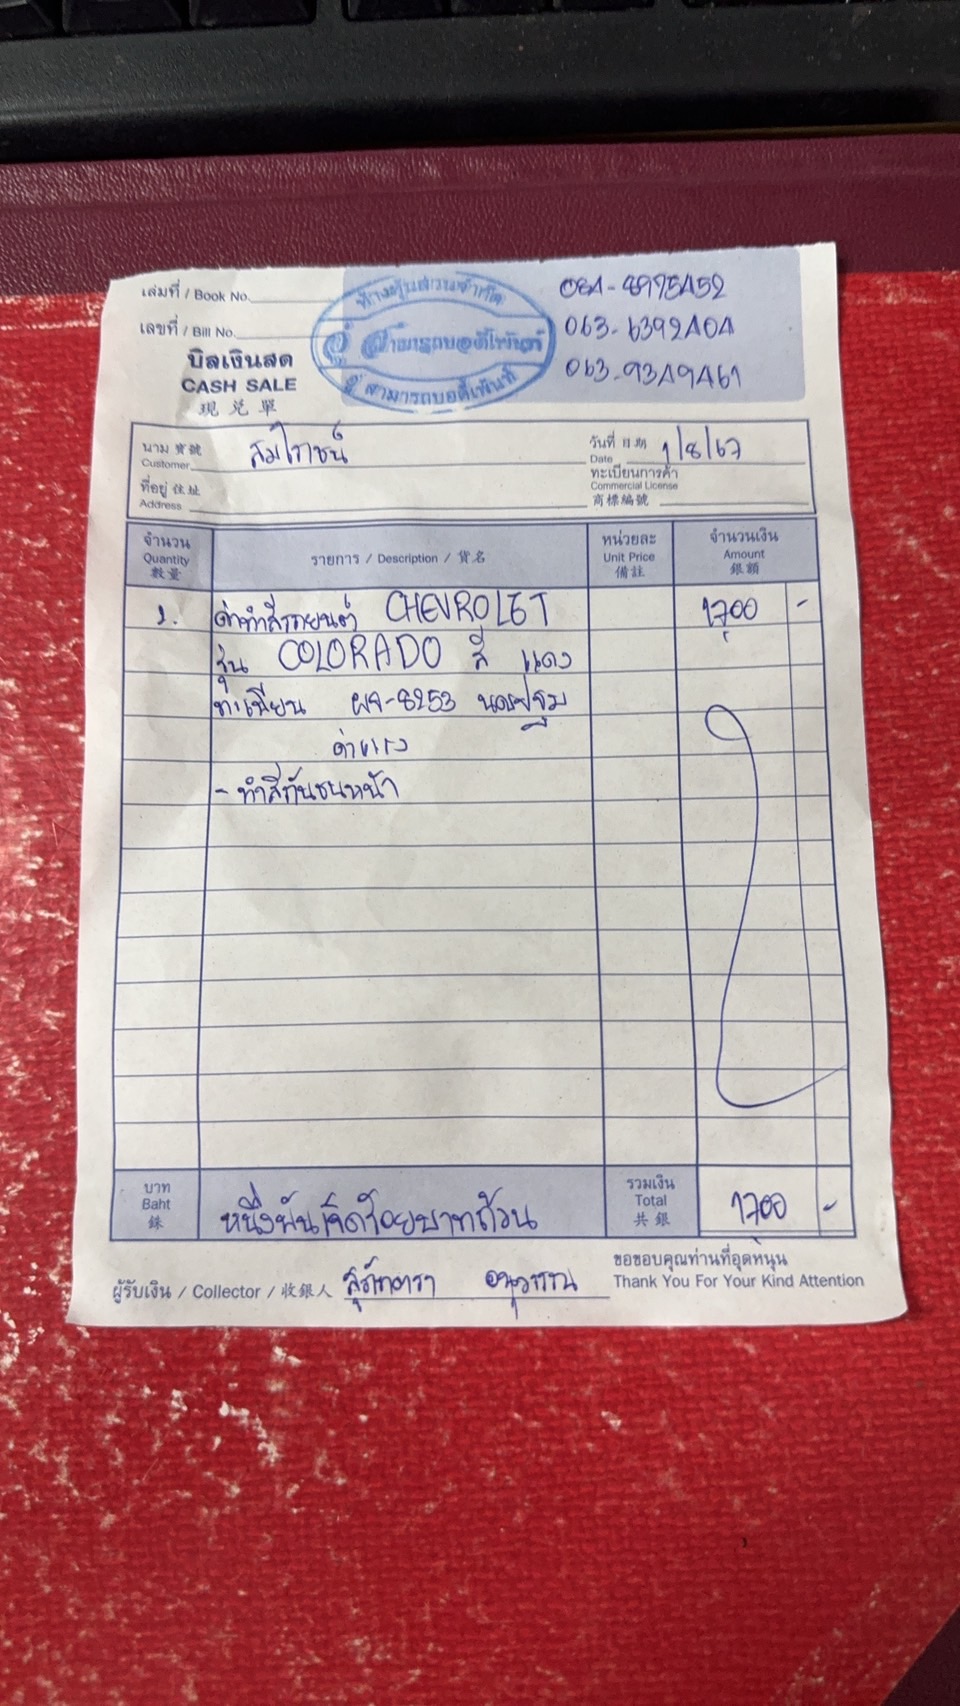 เล่มที่ / Book No.
เลขที่ / Bill No.
บิลเงินสด
CASH SALE
現兌單
ห้างหุ้นส่วนจำกัด
สามารถบอดี้เพ้นท์
อู่ สามารถบอดี้เพ้นท์
081-8975452
063-6392404
063-9349461
นาม 寶號 Customer สมโภชน์
วันที่ 日期 Date 1/8/67
ที่อยู่ 住址 Address
ทะเบียนการค้า Commercial License 商標編號
จำนวน Quantity 數量 รายการ / Description / 貨名 หน่วยละ Unit Price 備註 จำนวนเงิน Amount 銀額
1. ค่าทำสีรถยนต์ CHEVROLET 1700 -
รุ่น COLORADO สี แดง
ทะเบียน 8253 นครปฐม
ค่าแรง
- ทำสีกันชนหน้า
บาท Baht 銖 หนึ่งพันเจ็ดร้อยบาทถ้วน รวมเงิน Total 共銀 1700 -
ผู้รับเงิน / Collector / 收銀人
ขอขอบคุณท่านที่อุดหนุน
Thank You For Your Kind Attention